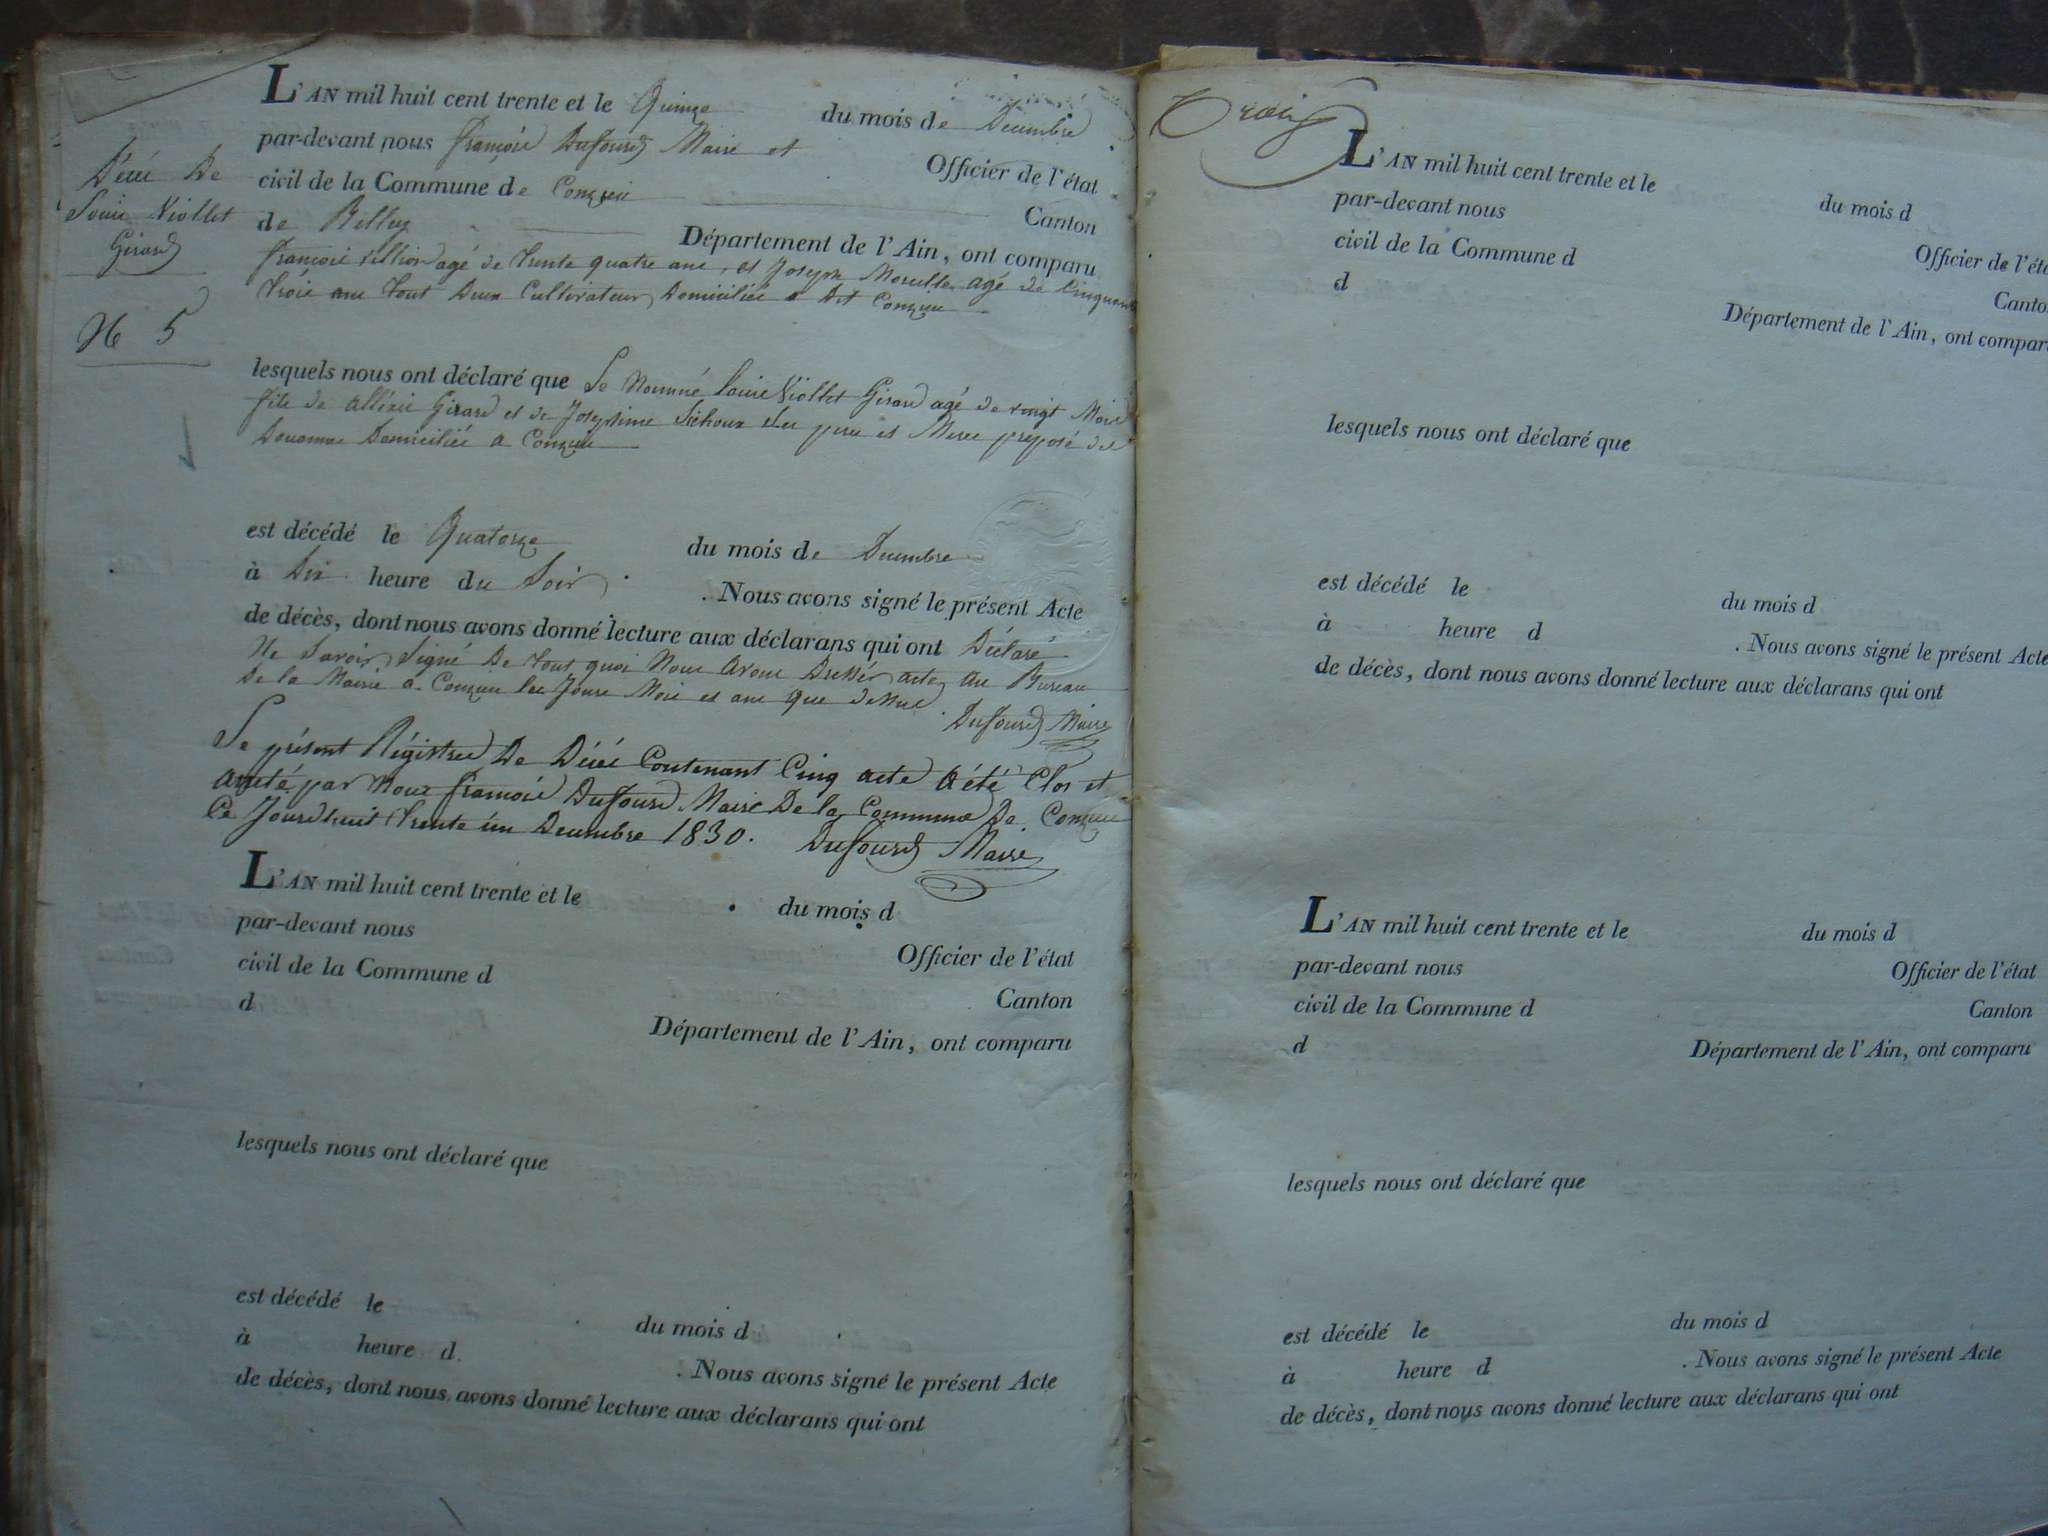 Décé De
Louis Viollet
Girard
N 5
L'AN mil huit cent trente et le Quinze du mois de Décembre
par-devant nous françois Dufourd Maire et Officier de l'état
civil de la Commune de Conzieu Canton
de Belley Département de l'Ain, ont comparu
françois agé de trente quatre ans, et Joseph agé de Cinquante
trois ans tout Deux Cultivateur Domiciliés a Dit Conzieu
lesquels nous ont déclaré que Le Nommé Louis Viollet Girard agé de vingt Mois
fils de Girard et de Josephine Ses pere et Mere préposé des
Douanne Domiciliés a Conzieu
est décédé le Quatorze du mois de Décembre
à Dix heure du Soir . Nous avons signé le présent Acte
de décès, dont nous avons donné lecture aux déclarans qui ont Déclaré
Ne Savoir Signé De tout quoi Nous avons Dressér acte au Bureau
De la Mairie a Conzieu les Jours Mois et ans que dessus
Dufourd Maire
Le présent Régistre De Décés Contenant Cinq acte a été Clos et
areté par Nous françois Dufourd Maire De la Commune De Conzieu
Ce Jourdhuit trente un Decembre 1830. Dufourd Maire
L'AN mil huit cent trente et le du mois d
par-devant nous Officier de l'état
civil de la Commune d Canton
d Département de l'Ain, ont comparu
lesquels nous ont déclaré que
est décédé le du mois d
à heure d . Nous avons signé le présent Acte
de décès, dont nous avons donné lecture aux déclarans qui ont
Trois
L'AN mil huit cent trente et le du mois d
par-devant nous Officier de l'éta
civil de la Commune d Canto
d Département de l'Ain, ont compar
lesquels nous ont déclaré que
est décédé le du mois d
à heure d . Nous avons signé le présent Acte
de décès, dont nous avons donné lecture aux déclarans qui ont
L'AN mil huit cent trente et le du mois d
par-devant nous Officier de l'état
civil de la Commune d Canton
d Département de l'Ain, ont comparu
lesquels nous ont déclaré que
est décédé le du mois d
à heure d . Nous avons signé le présent Acte
de décès, dont nous avons donné lecture aux déclarans qui ont